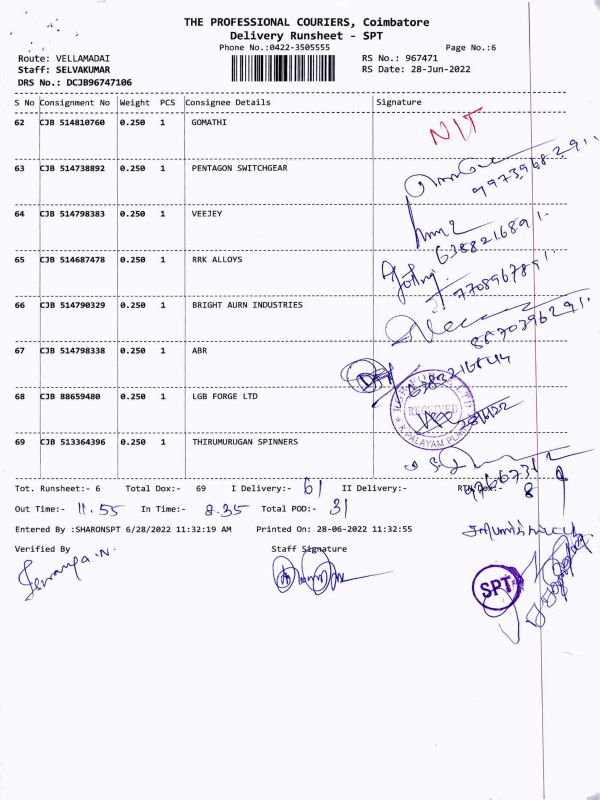 THE PROFESSIONAL COURIERS, Coimbatore
Delivery Runsheet - SPT
Phone No.:0422-3505555 Page No.:6
Route: VELLAMADAI RS No.: 967471
Staff: SELVAKUMAR RS Date: 28-Jun-2022
DRS No.: DCJB96747106
S No Consignment No Weight PCS Consignee Details Signature
62 CJB 514810760 0.250 1 GOMATHI
63 CJB 514738892 0.250 1 PENTAGON SWITCHGEAR
64 CJB 514798383 0.250 1 VEEJEY
6388216891
65 CJB 514687478 0.250 1 RRK ALLOYS
7708967891
66 CJB 514790329 0.250 1 BRIGHT AURN INDUSTRIES
67 CJB 514798338 0.250 1 ABR
68 CJB 88659480 0.250 1 LGB FORGE LTD
RECEIVED
69 CJB 513364396 0.250 1 THIRUMURUGAN SPINNERS
Tot. Runsheet:- 6 Total Dox:- 69 I Delivery:- 61 II Delivery:- 8
Out Time:- 11.55 In Time:- 8.35 Total POD:- 31
Entered By :SHARONSPT 6/28/2022 11:32:19 AM Printed On: 28-06-2022 11:32:55
Verified By Staff Signature
SPT